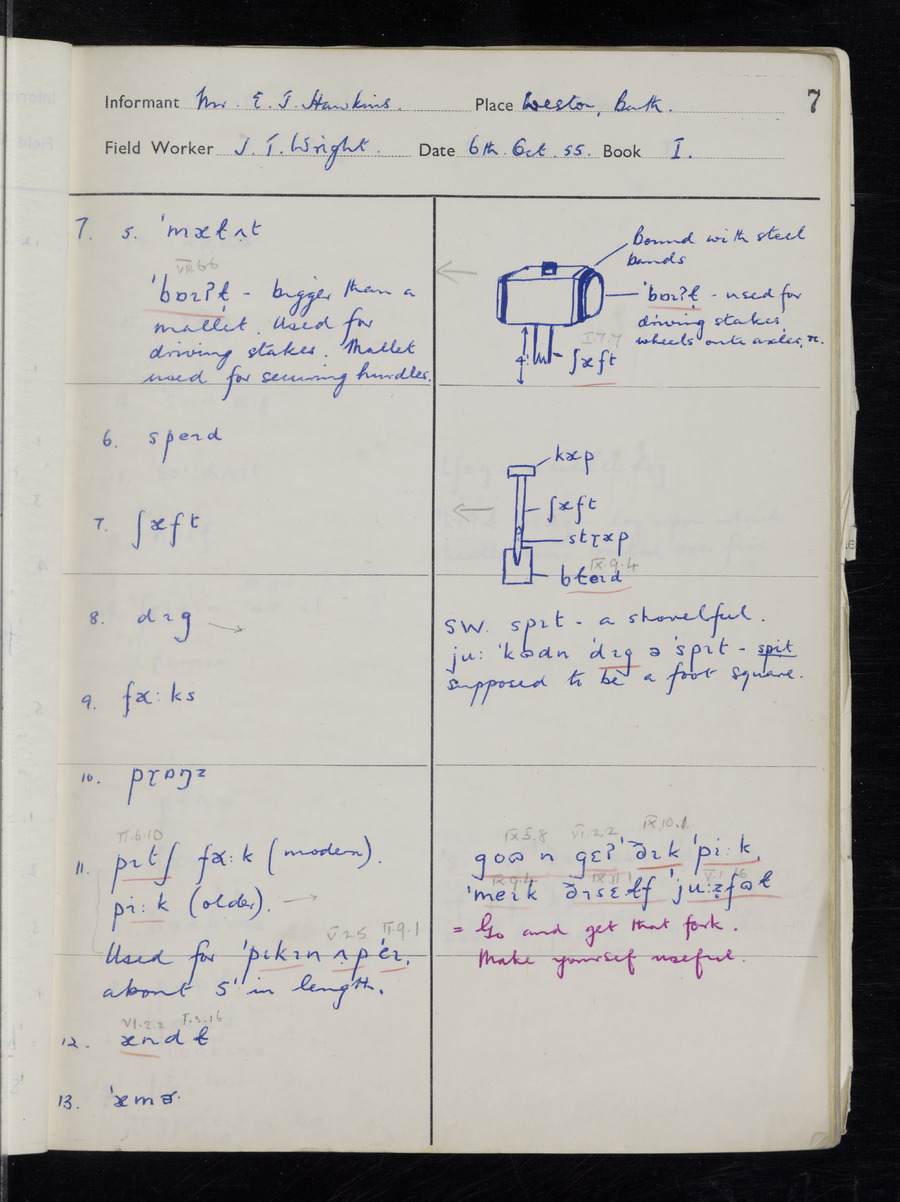 Informant Mr. E. J. Hawkins. Place Weston, Bath. 7
Field Worker J. T. Wright. Date 6th. Oct. 55. Book I.
7. 5. ˈmæɫɪ̣t
VII.6.6
ˈbɒɪʔɫ - bigger than a
mallet. Used for
driving stakes. Mallet
used for securing hurdles.
6. speɪd
7. ʃæft
8. dɪg →
9. fɑ:ks
10. pɽɒŋz
II.6.10
11. pɪtʃ fɑ:k (modern).
pi: k (older). →
V.2.5 II.9.1
Used for
about 5' in length.
VI.2.2
12. ændɫ
13. ˈæmɚ
Bound with steel
bands
ˈbɒɪʔɫ - used for
driving stakes,
wheels onto axles, &c.
I.7.7
4' ʃæft
kæp
ʃæft
stɽæp
IX.9.4
bɫeɪd
SW. spɪt - a shovelful.
ju: ˈkədn ˈdɪg ə ˈspɪt - spit
supposed to be a foot square.
IX.5.8 VI.2.2 IX.10.1
goʊ n gɛʔ ˈðɪk ˈpi: k.
IX.9.4 IX.11.1
ˈmeɪk ðɪsɛɫf ˈju:zfəɫ
= Go and get that fork.
Make yourself useful.